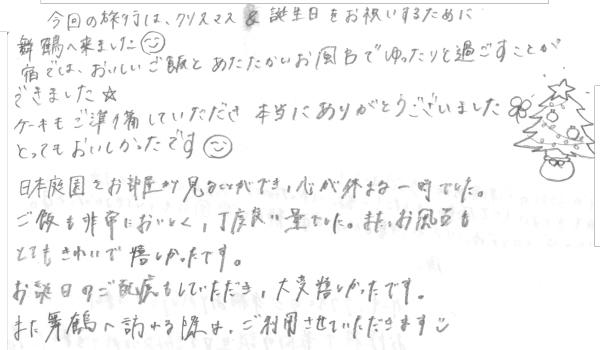 今回の旅行は、クリスマス & 誕生日をお祝いするために
舞鶴へ来ました
宿では、おいしいご飯とあたたかいお風呂でゆったりと過ごすことが
できました☆
ケーキもご準備していただき 本当にありがとうございました
とってもおいしかったです
日本庭園をお部屋から見ることができ、心が休まる一時でした。
ご飯も非常においしく、丁度良い量でした。また、お風呂も
とてもきれいで嬉しかったです。
お誕生日のご配慮もしていただき、大変嬉しかったです。
また舞鶴へ訪れる際は、ご利用させていただきます